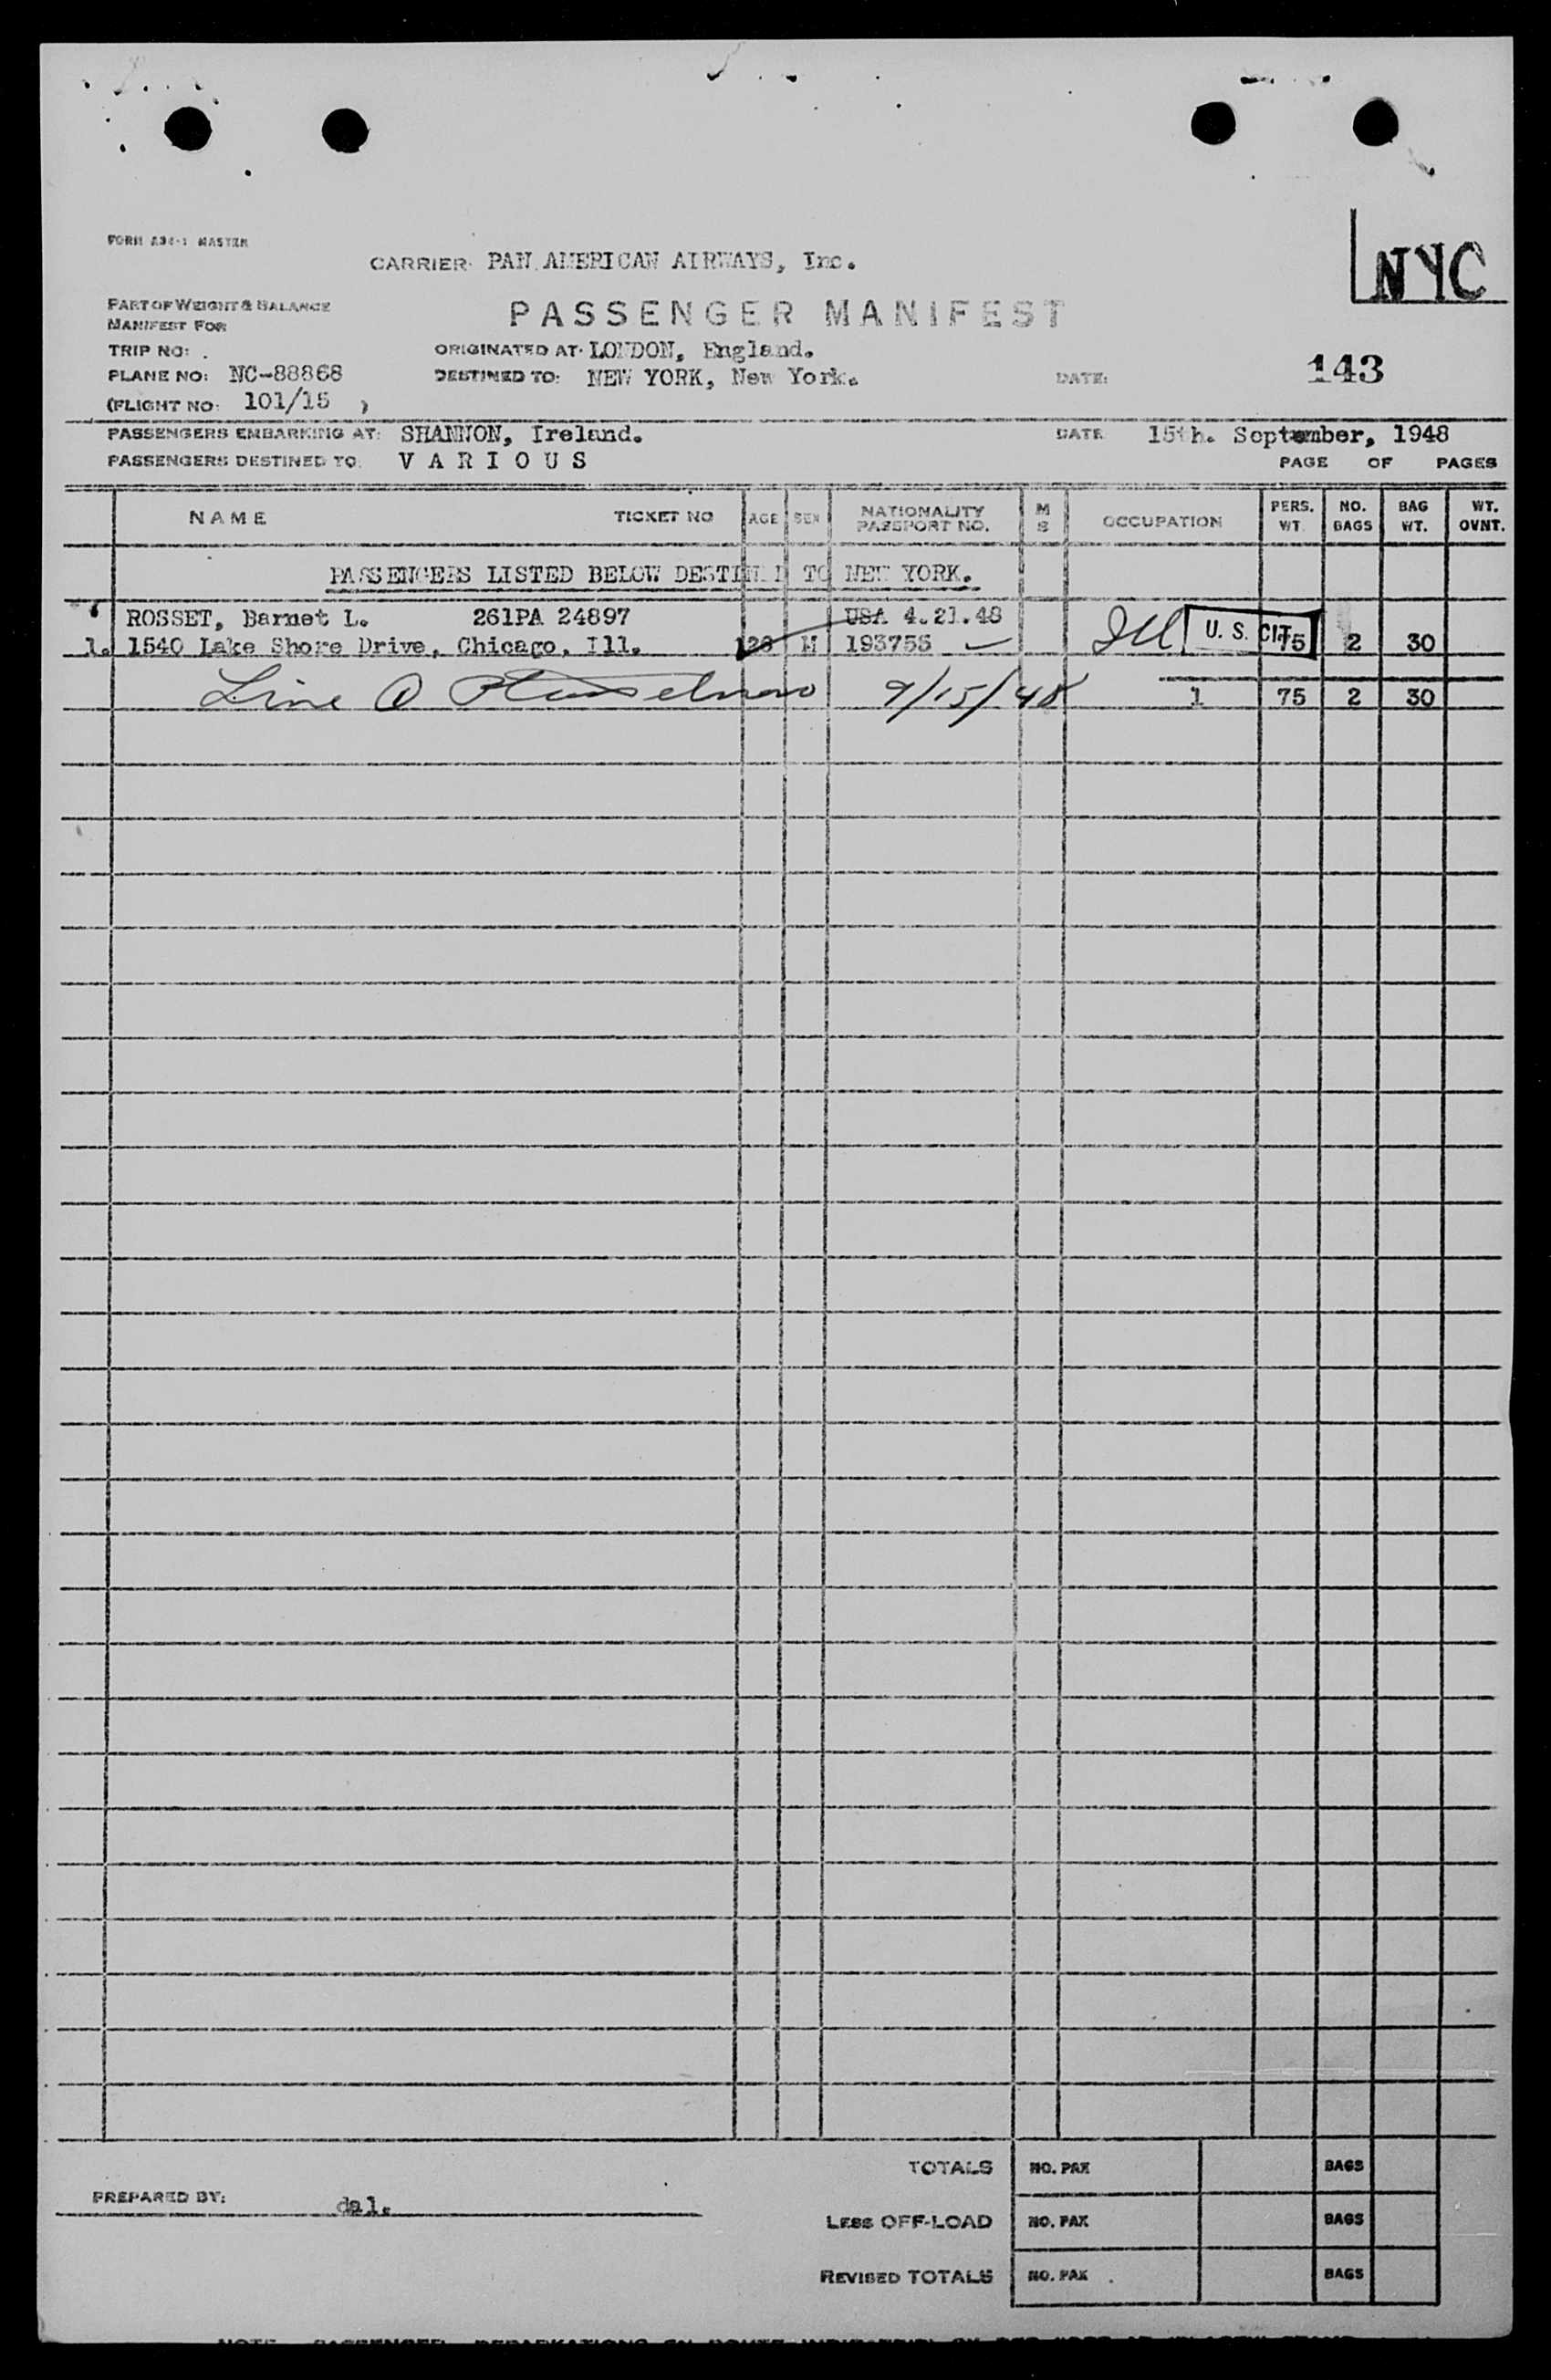 FORM A34-1 MASTER
CARRIER: PAN AMERICAN AIRWAYS, Inc.
NYC
PART OF WEIGHT & BALANCE
MANIFEST FOR
PASSENGER MANIFEST
TRIP NO: .
ORIGINATED AT: LONDON, England.
143
PLANE NO: NC-88868
DESTINED TO: NEW YORK, New York.
DATE:
(FLIGHT NO: 101/15 )
PASSENGERS EMBARKING AT: SHANNON, Ireland.
DATE 15th. September, 1948
PASSENGERS DESTINED TO: VARIOUS
PAGE OF PAGES
NAME TICKET NO AGE SEX NATIONALITY PASSPORT NO. M S OCCUPATION PERS. WT. NO. BAGS BAG WT. WT. OVNT.
PASSENGERS LISTED BELOW DESTINED TO NEW YORK.
ROSSET, Barnet L. 261PA 24897 USA 4.21.48
1. 1540 Lake Shore Drive, Chicago, Ill. 26 M 193755 Ill U. S. CIT 75 2 30
9/15/48 1 75 2 30
TOTALS NO. PAX BAGS
PREPARED BY: dal.
LESS OFF-LOAD NO. PAX BAGS
REVISED TOTALS NO. PAX . BAGS